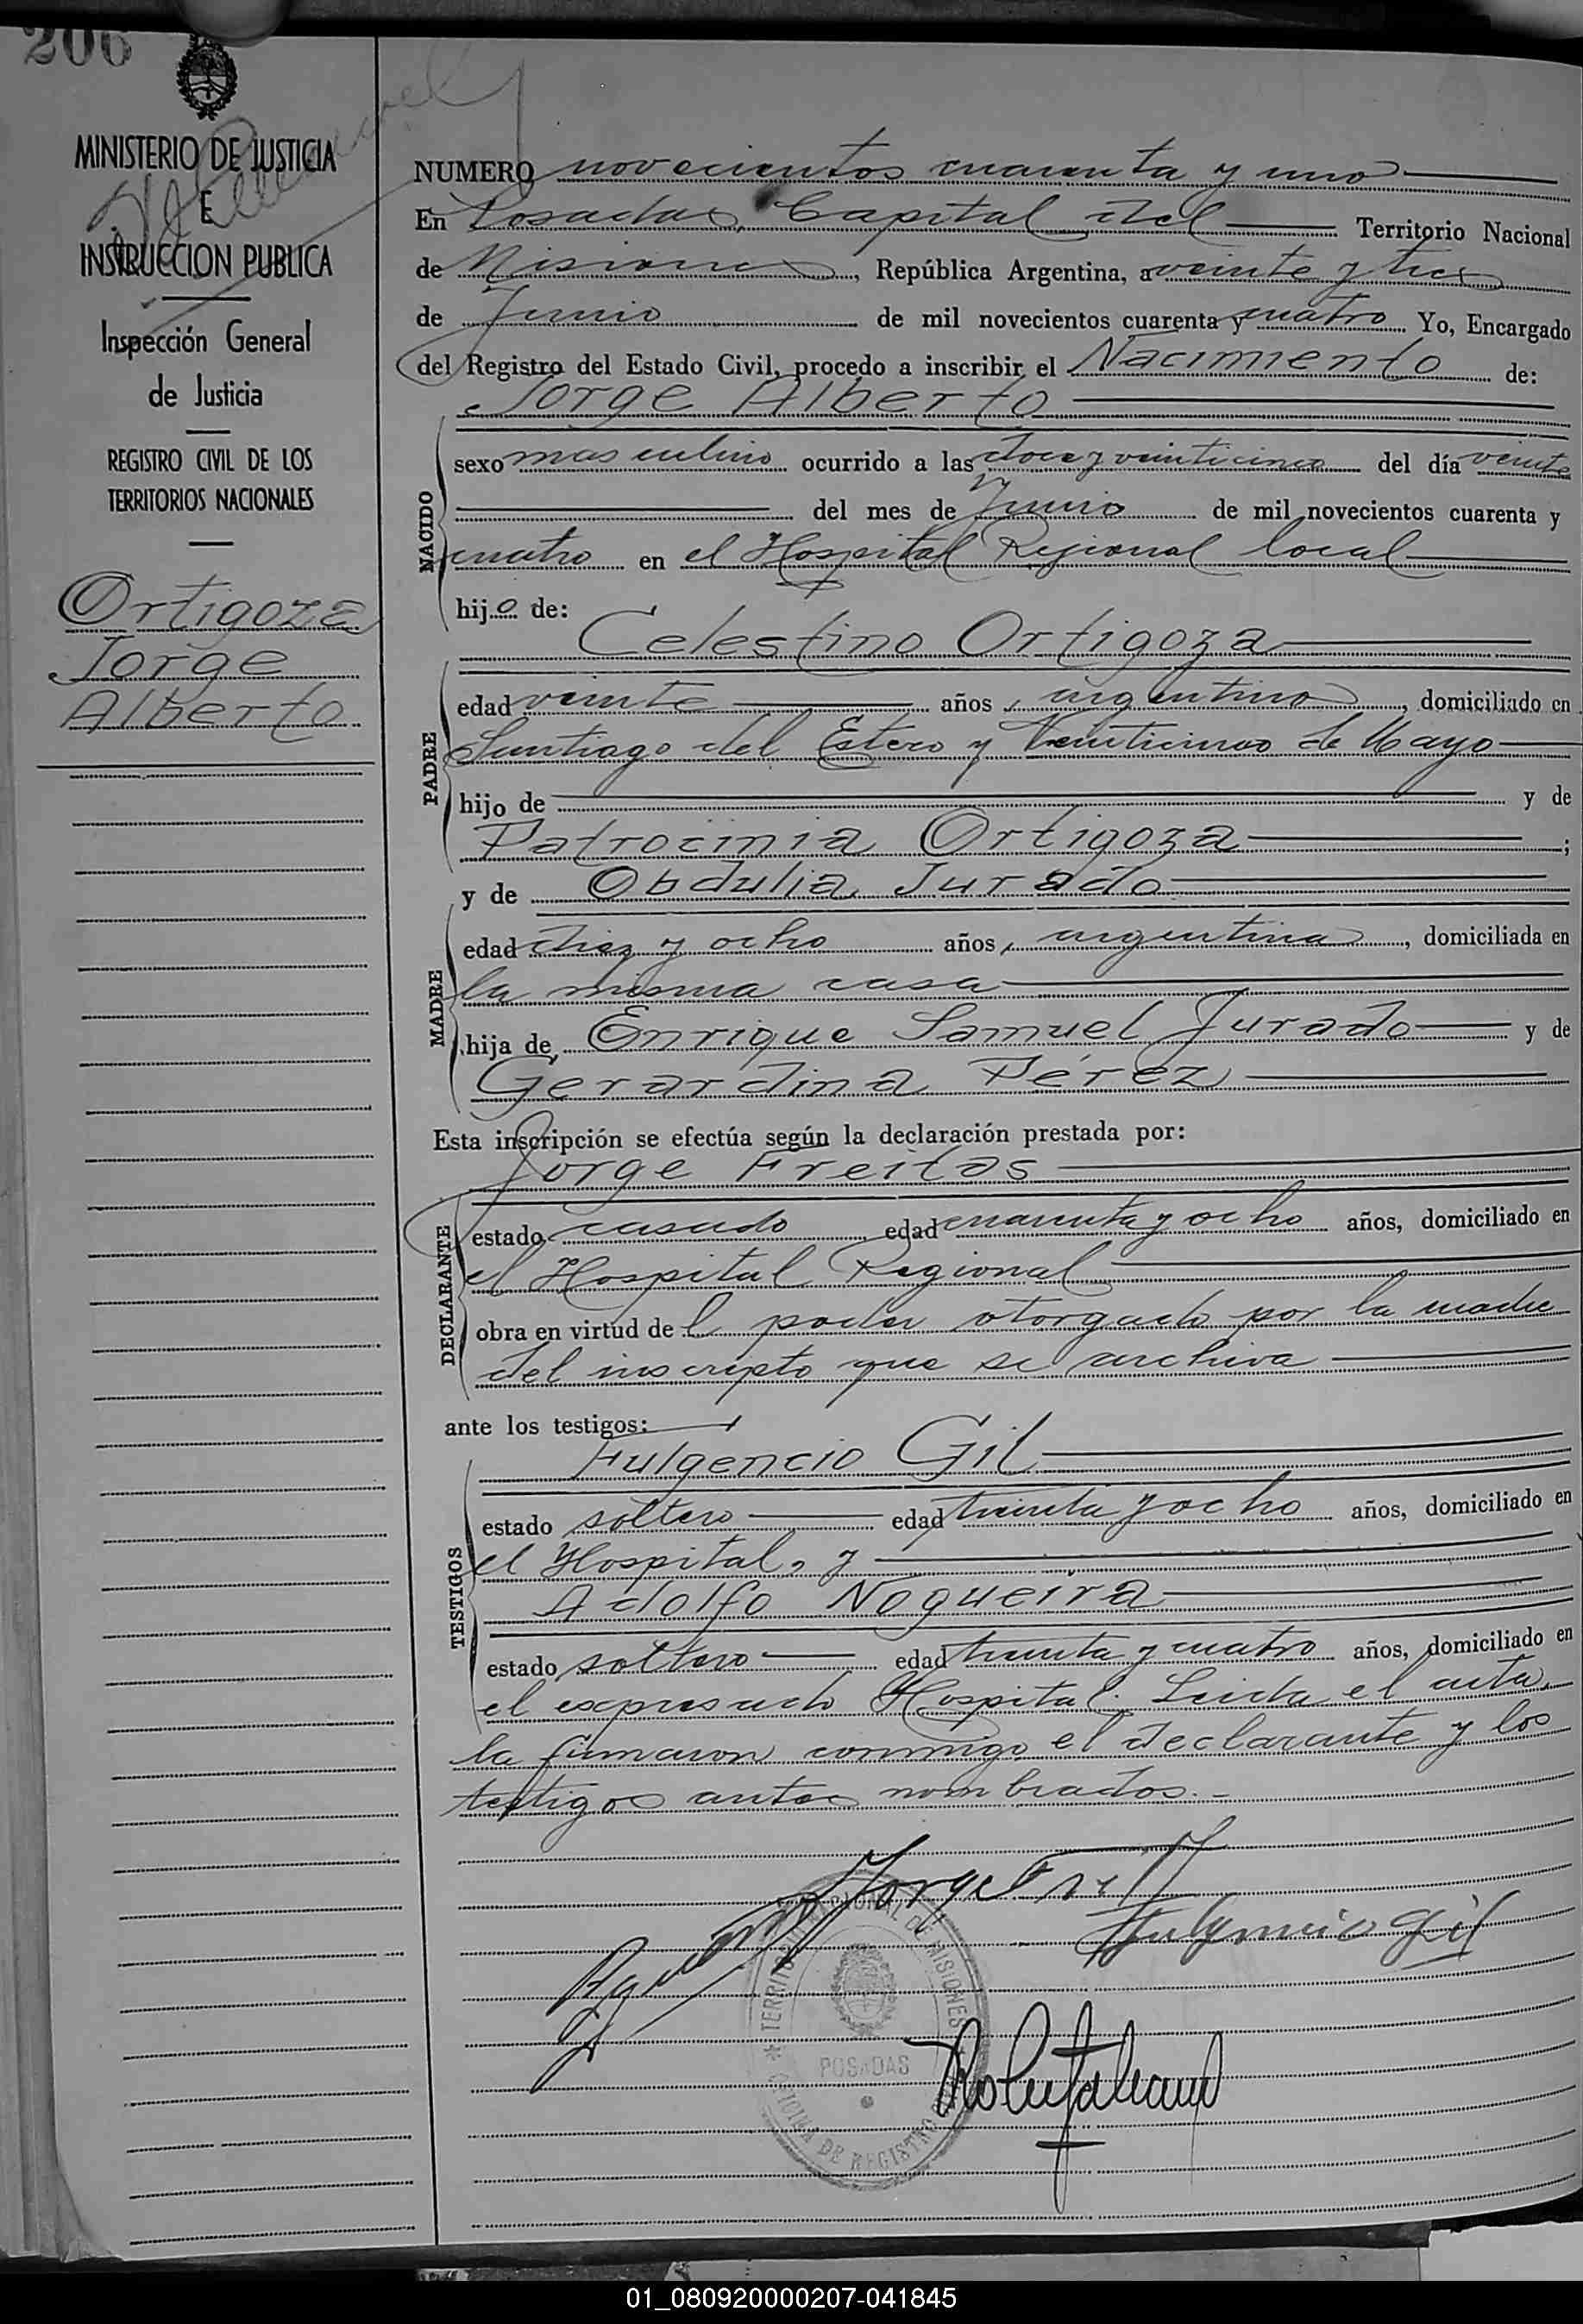 206
MINISTERIO DE JUSTICIA
E
INSTRUCCION PUBLICA
Inspección General
de Justicia
REGISTRO CIVIL DE LOS
TERRITORIOS NACIONALES
Ortigoza
Jorge
Alberto
NUMERO novecientos cuarenta y uno
En Posadas, Capital del Territorio Nacional
de Misiones, República Argentina, a veinte y tres
de Junio de mil novecientos cuarenta y cuatro Yo, Encargado
del Registro del Estado Civil, procedo a inscribir el Nacimiento de:
Jorge Alberto
NACIDO
sexo masculino ocurrido a las doce y veinticinco del día veinte
del mes de Junio de mil novecientos cuarenta y
cuatro en el Hospital Regional local
hijo de:
Celestino Ortigoza
PADRE
edad veinte años, argentino, domiciliado en
Santiago del Estero y Veinticinco de Mayo
hijo de y de
Patrocinia Ortigoza ;
y de Obdulia Jurado
MADRE
edad diez y ocho años, argentina, domiciliada en
la misma casa
hija de Enrique Samuel Jurado y de
Gerardina Pérez
Esta inscripción se efectúa según la declaración prestada por:
Jorge Freitas
DECLARANTE
estado casado edad cuarenta y ocho años, domiciliado en
el Hospital Regional
obra en virtud del poder otorgado por la madre
del inscripto que se archiva
ante los testigos:
Fulgencio Gil
TESTIGOS
estado soltero edad treinta y ocho años, domiciliado en
el Hospital, y
Adolfo Nogueira
estado soltero edad treinta y cuatro años, domiciliado en
el expresado Hospital. Leida el acta,
la firmaron conmigo el declarante y los
testigos antes nombrados.-
Fulgencio Gil
TERRITORIO NACIONAL DE MISIONES
POSADAS
OFICINA DE REGISTRO
01_080920000207-041845